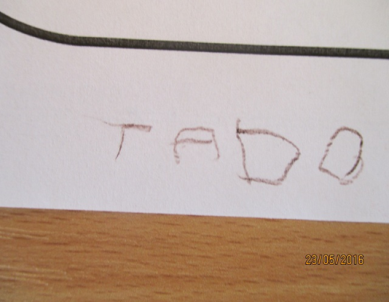 TADO
23/05/2016